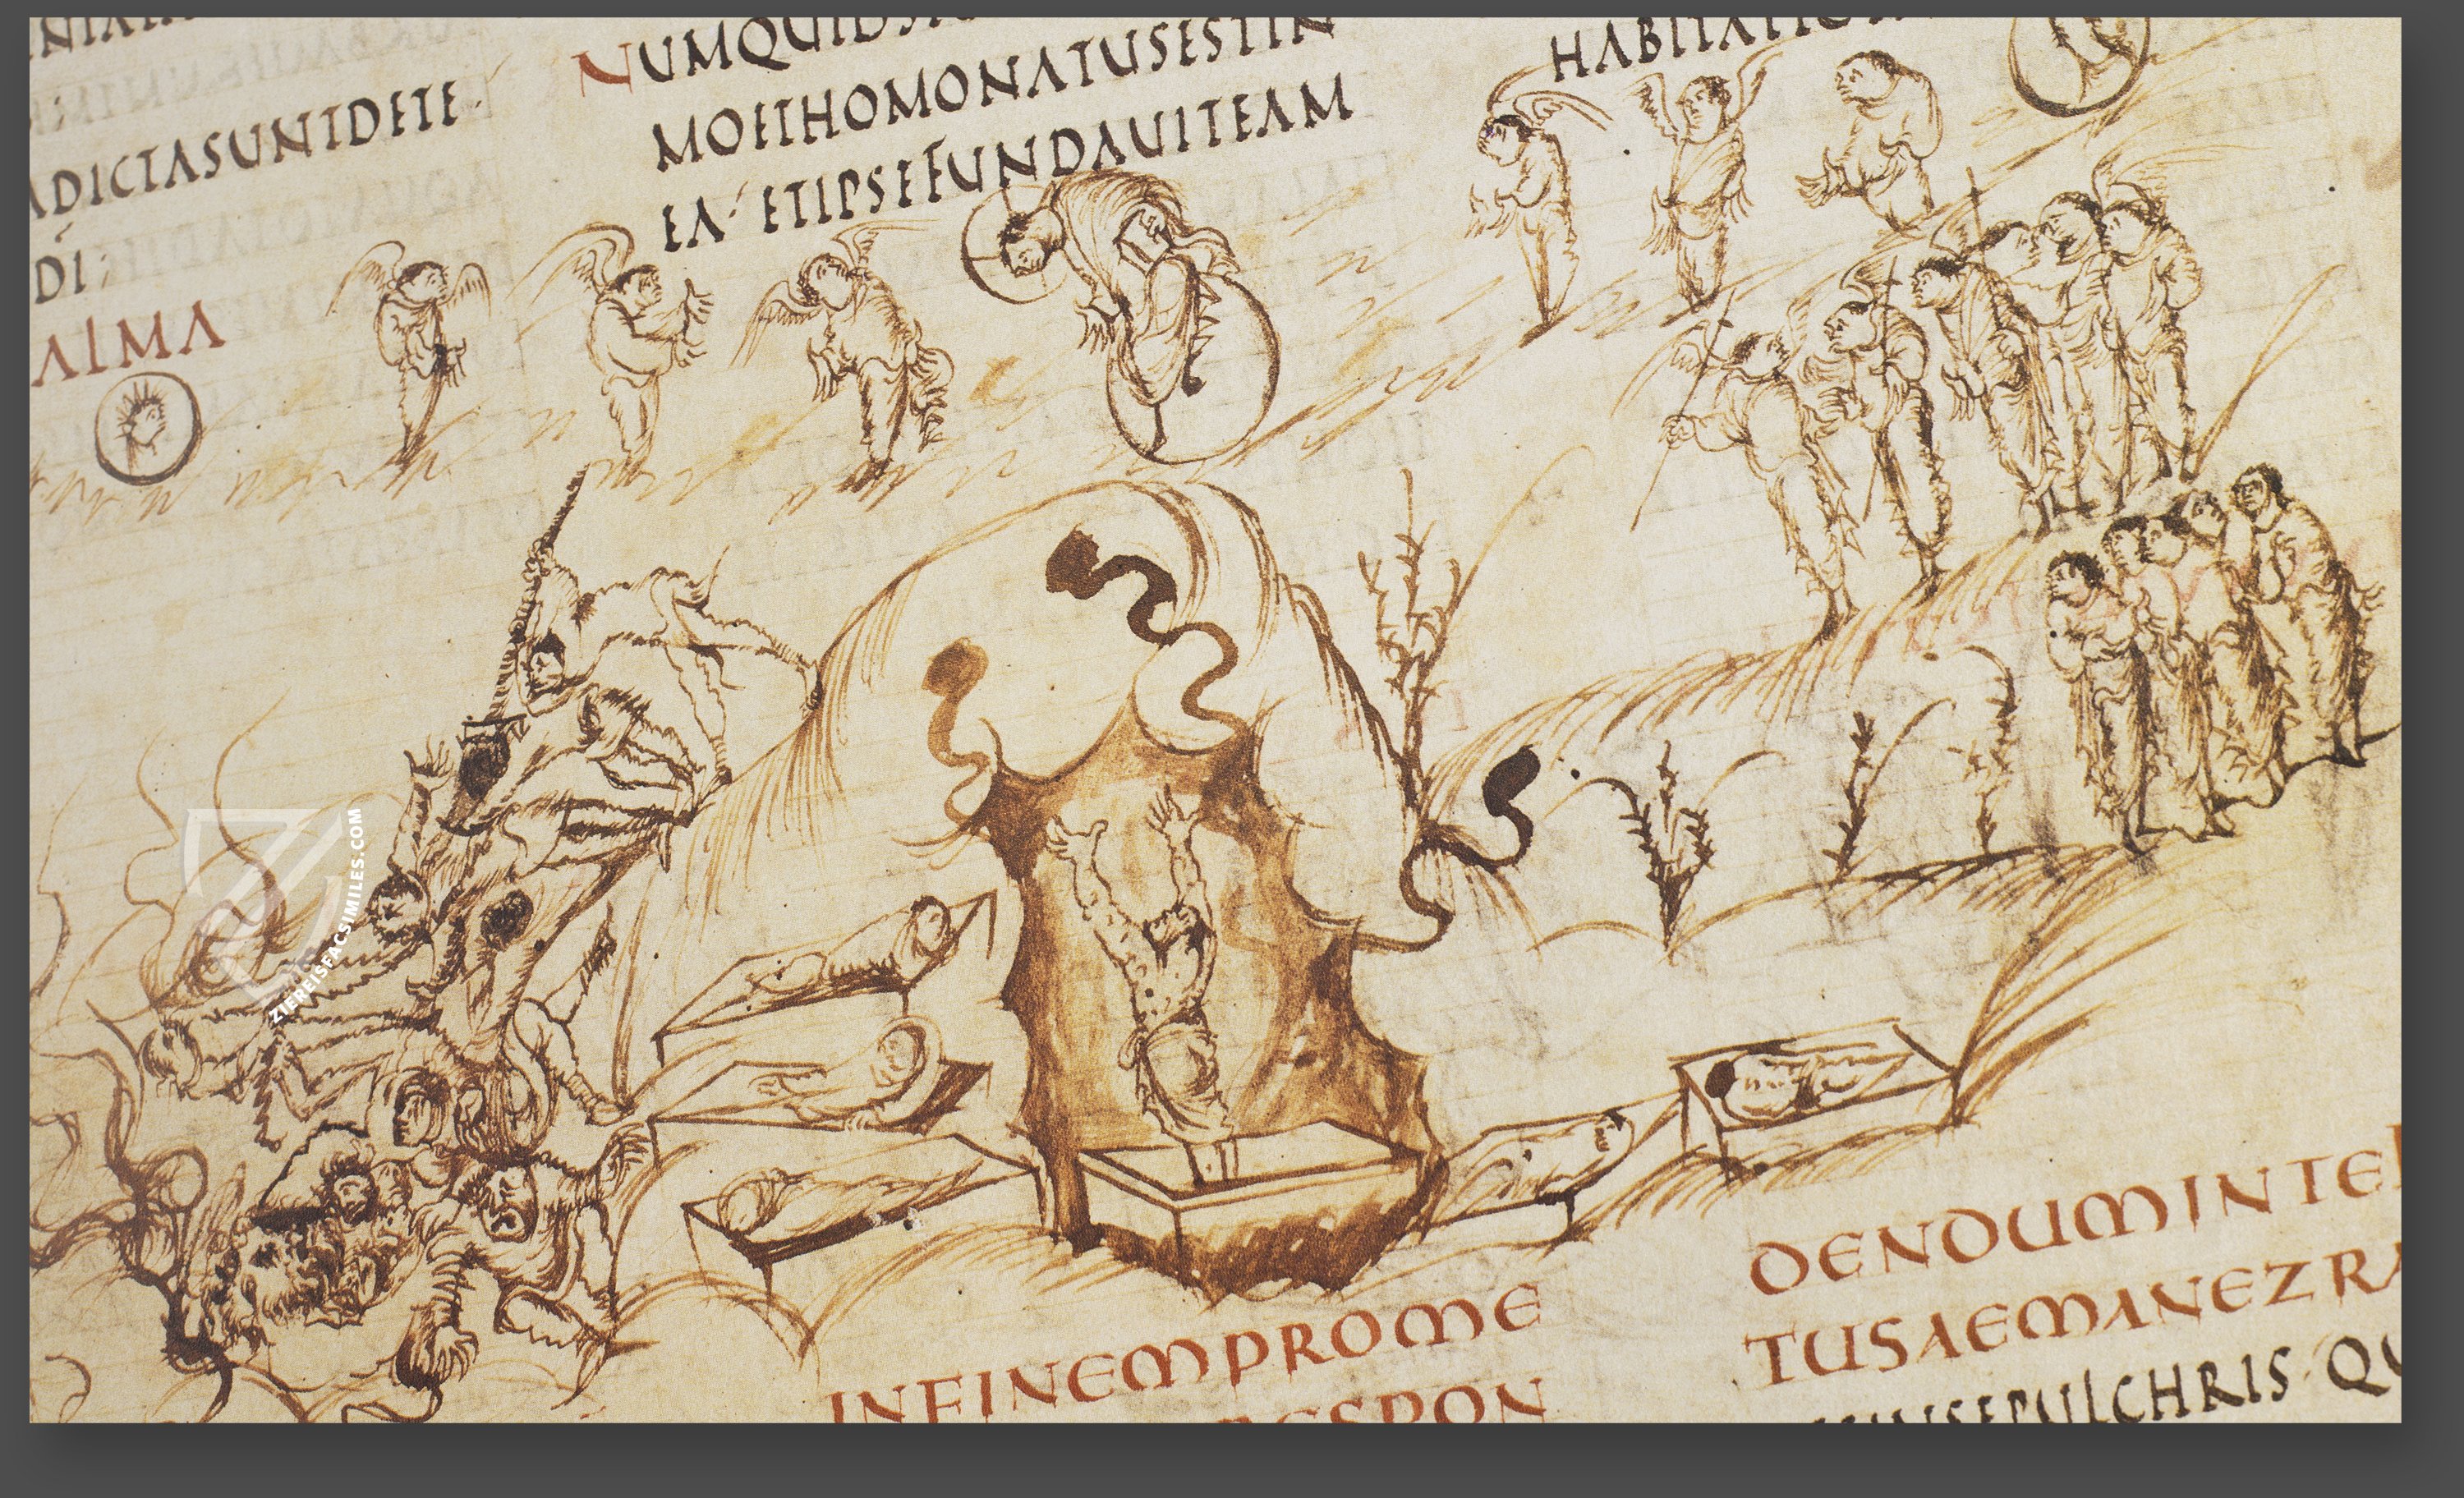 ADICTASUNTDETE
DI:
ALMA
NUMQUIDSI
MOETHOMONATUSESTIN
EA· ETIPSEFUNDAUITEAM
HABITATIO
INFINEMPROME
RESPON
DENDUMINTEL
TUSAEMANEZRA
INSEPULCHRIS· QU
ZIEREISFACSIMILES.COM